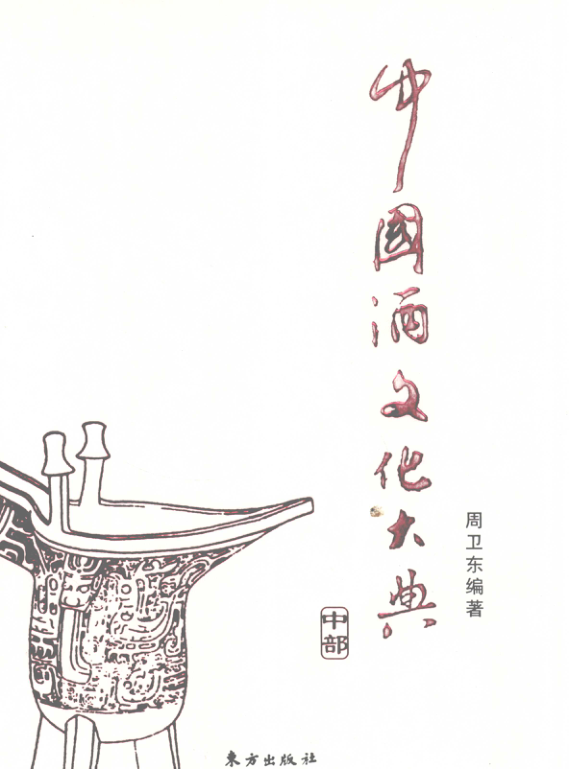 中国酒文化大典
周卫东编著
中部
东方出版社